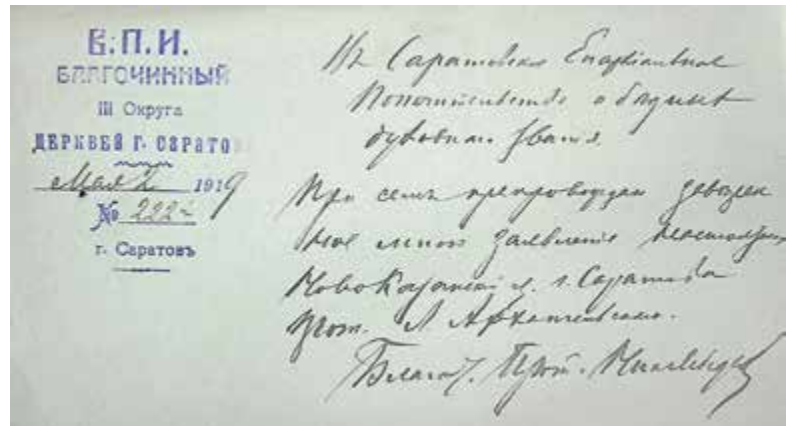 В.П.И.
БЛАГОЧИННЫЙ
III Округа
ЦЕРКВЕЙ Г. САРАТО
Мая 2 1919
№ 222
г. Саратовъ
Въ Саратовское Епархіальное
Попечительство о бедныхъ
духовнаго званія.
При семъ препровождаю
мною заявленіе настоятеля
Ново Казанской ц. г. Саратова
прот. Л Архангельскаго.
Благоч. Прот.